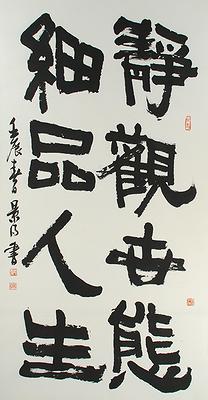 靜觀世態
細品人生
壬辰春景乃書